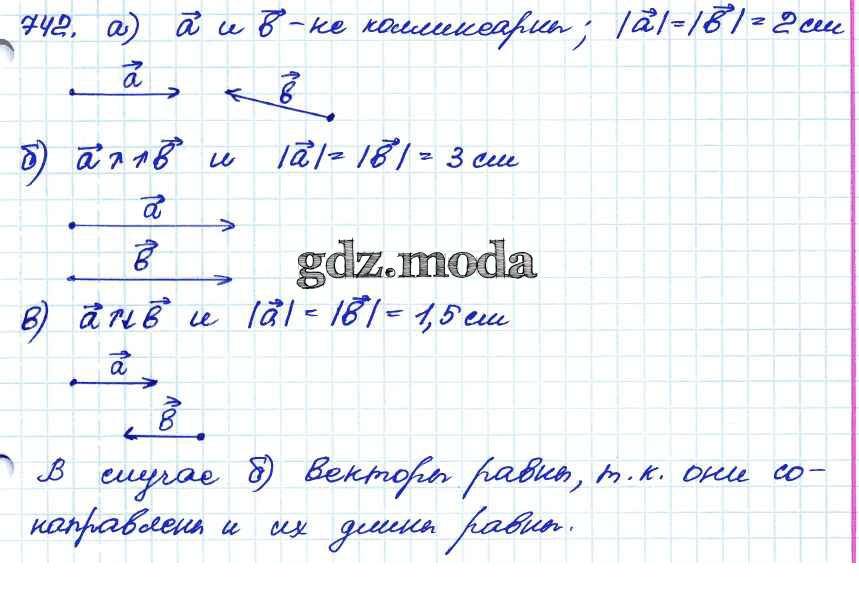 742. а) a⃗ и b⃗ - не коллинеарны; |a⃗| = |b⃗| = 2 см
a⃗ b⃗
б) a⃗ ↑↑ b⃗ и |a⃗| = |b⃗| = 3 см
a⃗
b⃗
gdz.moda
в) a⃗ ↑↓ b⃗ и |a⃗| = |b⃗| = 1,5 см
a⃗
b⃗
В случае б) векторы равны, т.к. они со-
направлены и их длины равны.